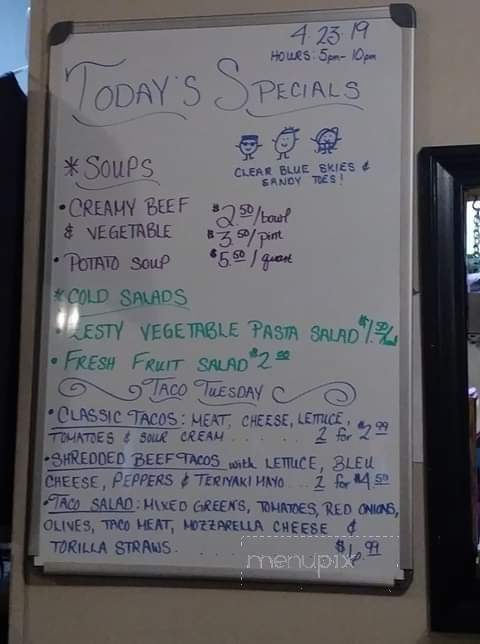 4.23.19
HOURS: 5pm-10pm
TODAY'S SPECIALS
CLEAR BLUE SKIES &
SANDY TOES!
*SOUPS
• CREAMY BEEF $2.50/bowl
& VEGETABLE $3.50/pint
• POTATO SOUP $5.50/quart
*COLD SALADS
• ZESTY VEGETABLE PASTA SALAD $1.50/
• FRESH FRUIT SALAD $2.00
TACO TUESDAY
• CLASSIC TACOS: MEAT, CHEESE, LETTUCE,
TOMATOES & SOUR CREAM ....... 2 for $2.99
• SHREDDED BEEF TACOS with LETTUCE, BLEU
CHEESE, PEPPERS & TERIYAKI MAYO... 2 for $4.50
• TACO SALAD: MIXED GREENS, TOMATOES, RED ONIONS,
OLIVES, TACO MEAT, MOZZARELLA CHEESE &
TORILLA STRAWS. $6.99
menupix